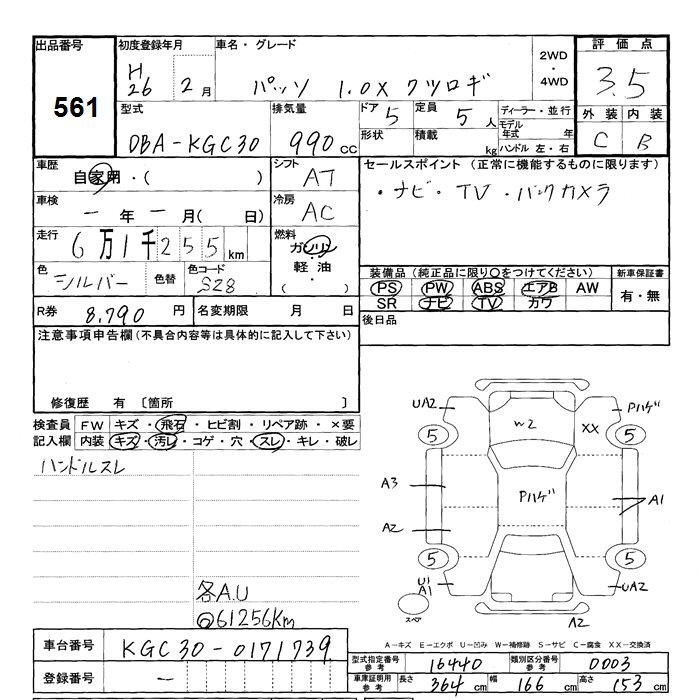 出品番号 初度登録年月 車名・グレード 2WD・4WD 評価点
561 H26 2月 パッソ 1.0X クツロギ 3.5
型式 排気量 ドア 5 定員 5人 ディーラー・並行 外装 内装
DBA-KGC30 990cc 形状 積載 kg モデル年式 年 ハンドル 左・右 C B
車歴 自家用・( ) シフト AT セールスポイント (正常に機能するものに限ります)
車検 ー年ー月( 日) 冷房 AC ・ナビ・TV・バックカメラ
走行 6万1千255km 燃料 ガソリン 軽油 ( ・ )
色 シルバー 色替 色コード S28 装備品(純正品に限り○をつけてください) 新車保証書
PS PW ABS エアB AW 有・無
SR ナビ TV カワ
R券 8,790円 名変期限 月 日 後日品
注意事項申告欄(不具合内容等は具体的に記入して下さい)
修復歴 有 〔箇所 〕
検査員 FW キズ・飛石・ヒビ割・リペア跡・×要
記入欄 内装 キズ・汚レ・コゲ・穴・スレ・キレ・破レ
ハンドルスレ
UA2 W2 XX Pハゲ
5 5
A3 Pハゲ A1
A2
5 5
U1 A1 UA2
スペア A2
各A.U
◎61256Km
A-キズ E-エクボ U-凹み W-補修跡 S-サビ C-腐食 XX-交換済
車台番号 KGC30-0171739
型式指定番号 参考 16440 類別区分番号 参考 0003
登録番号 ー 車庫証明用 参考 長さ 364cm 幅 166cm 高さ 153cm